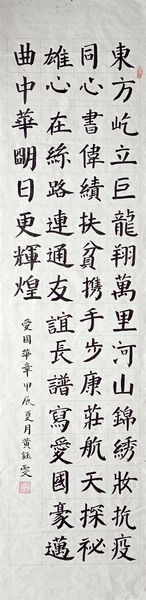 東方屹立巨龍翔萬里河山錦綉妝抗疫
同心書偉績扶貧携手步康莊航天探祕
雄心在絲路連通友誼長譜寫愛國豪邁
曲中華明日更輝煌
愛國華章甲辰夏月黄鈺雯